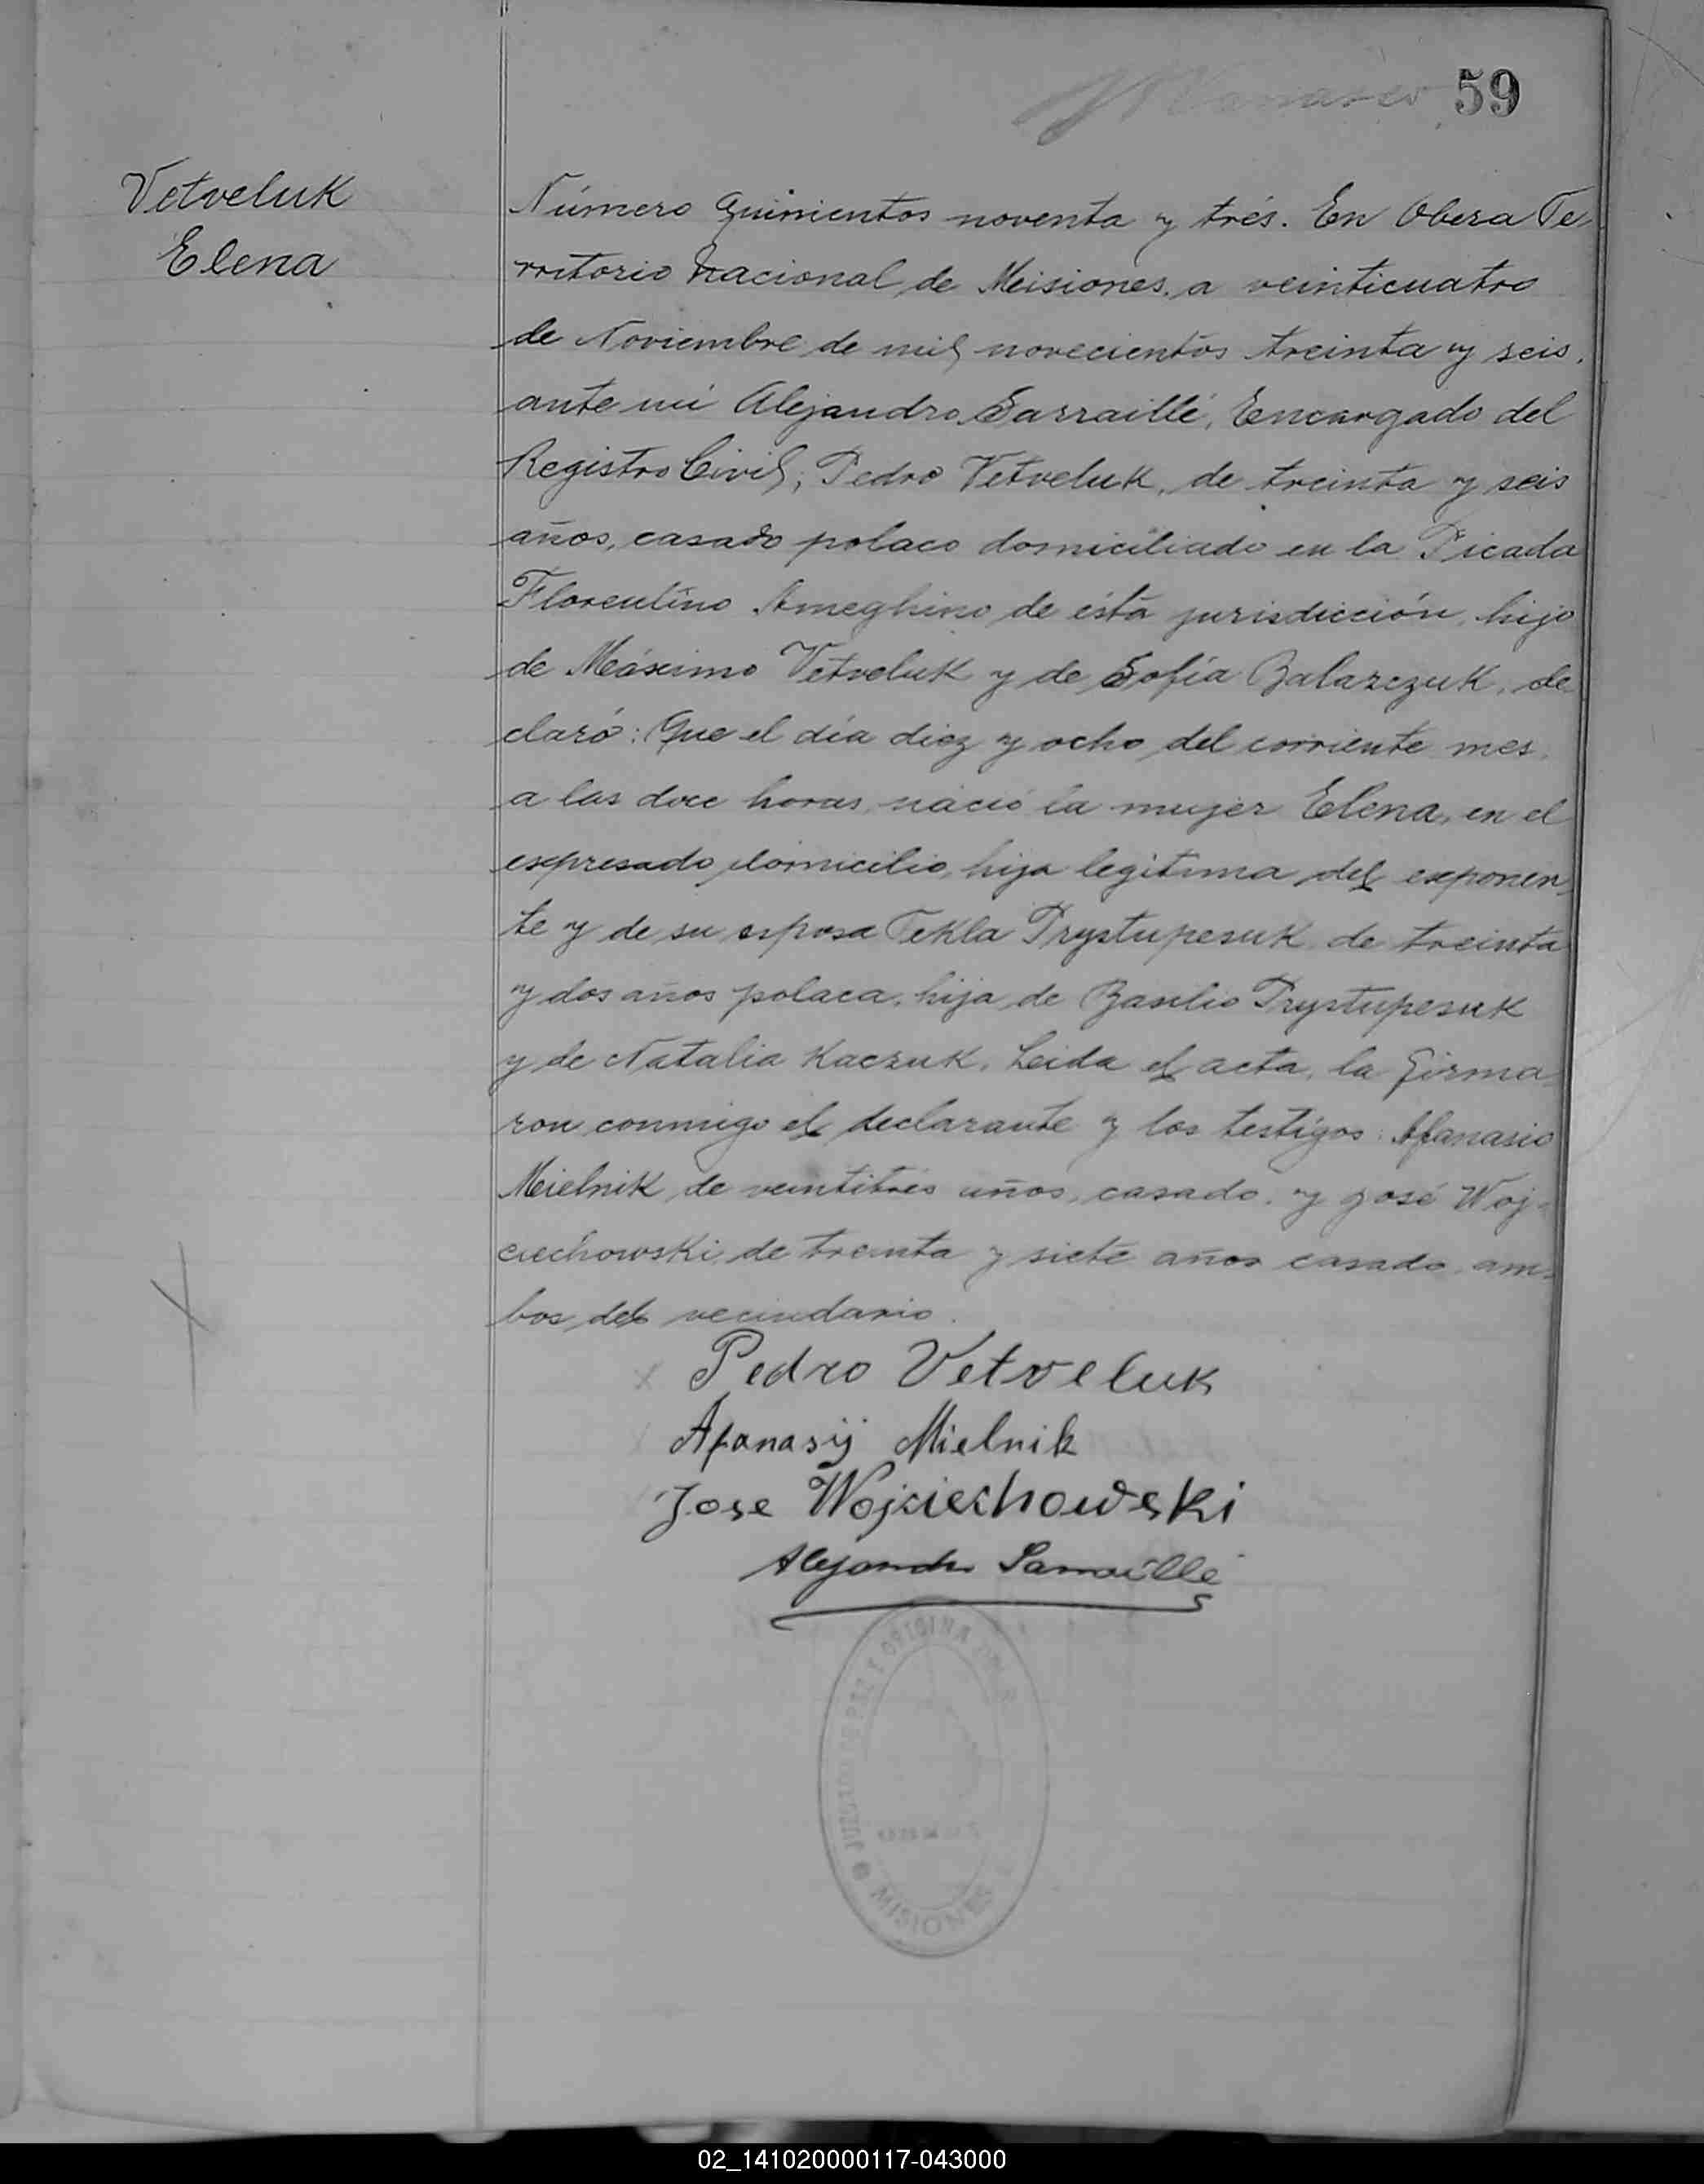 59
Vetveluk
Elena
Número quinientos noventa y trés. En Obera Te-
rritorio nacional de Misiones, a veinticuatro
de Noviembre de mil novecientos treinta y seis,
ante mí Alejandro Sarraillé, Encargado del
Registro Civil; Pedro Vetveluk, de treinta y seis
años, casado polaco domiciliado en la Picada
Florentino Ameghino de ésta jurisdicción, hijo
de Máximo Vetveluk y de Sofía Balazczuk, de
claró: Que el día diez y ocho del corriente mes,
a las doce horas, nació la mujer Elena, en el
expresado domicilio, hija legitima del exponen-
te y de su esposa Tekla Prystupesuk de treinta
y dos años polaca, hija de Basilio Prystupesuk
y de Natalia Kaczuk. Leida el acta, la firma-
ron conmigo el declarante y los testigos: Afanasio
Mielnik, de veintitrés años, casado, y José Woj-
ciechowski, de treinta y siete años casado, am-
bos del vecindario.
Pedro Vetveluk
Afanasij Mielnik
Jose Wojciechowski
Alejandro Sarraillé
MISIONES
02_141020000117-043000